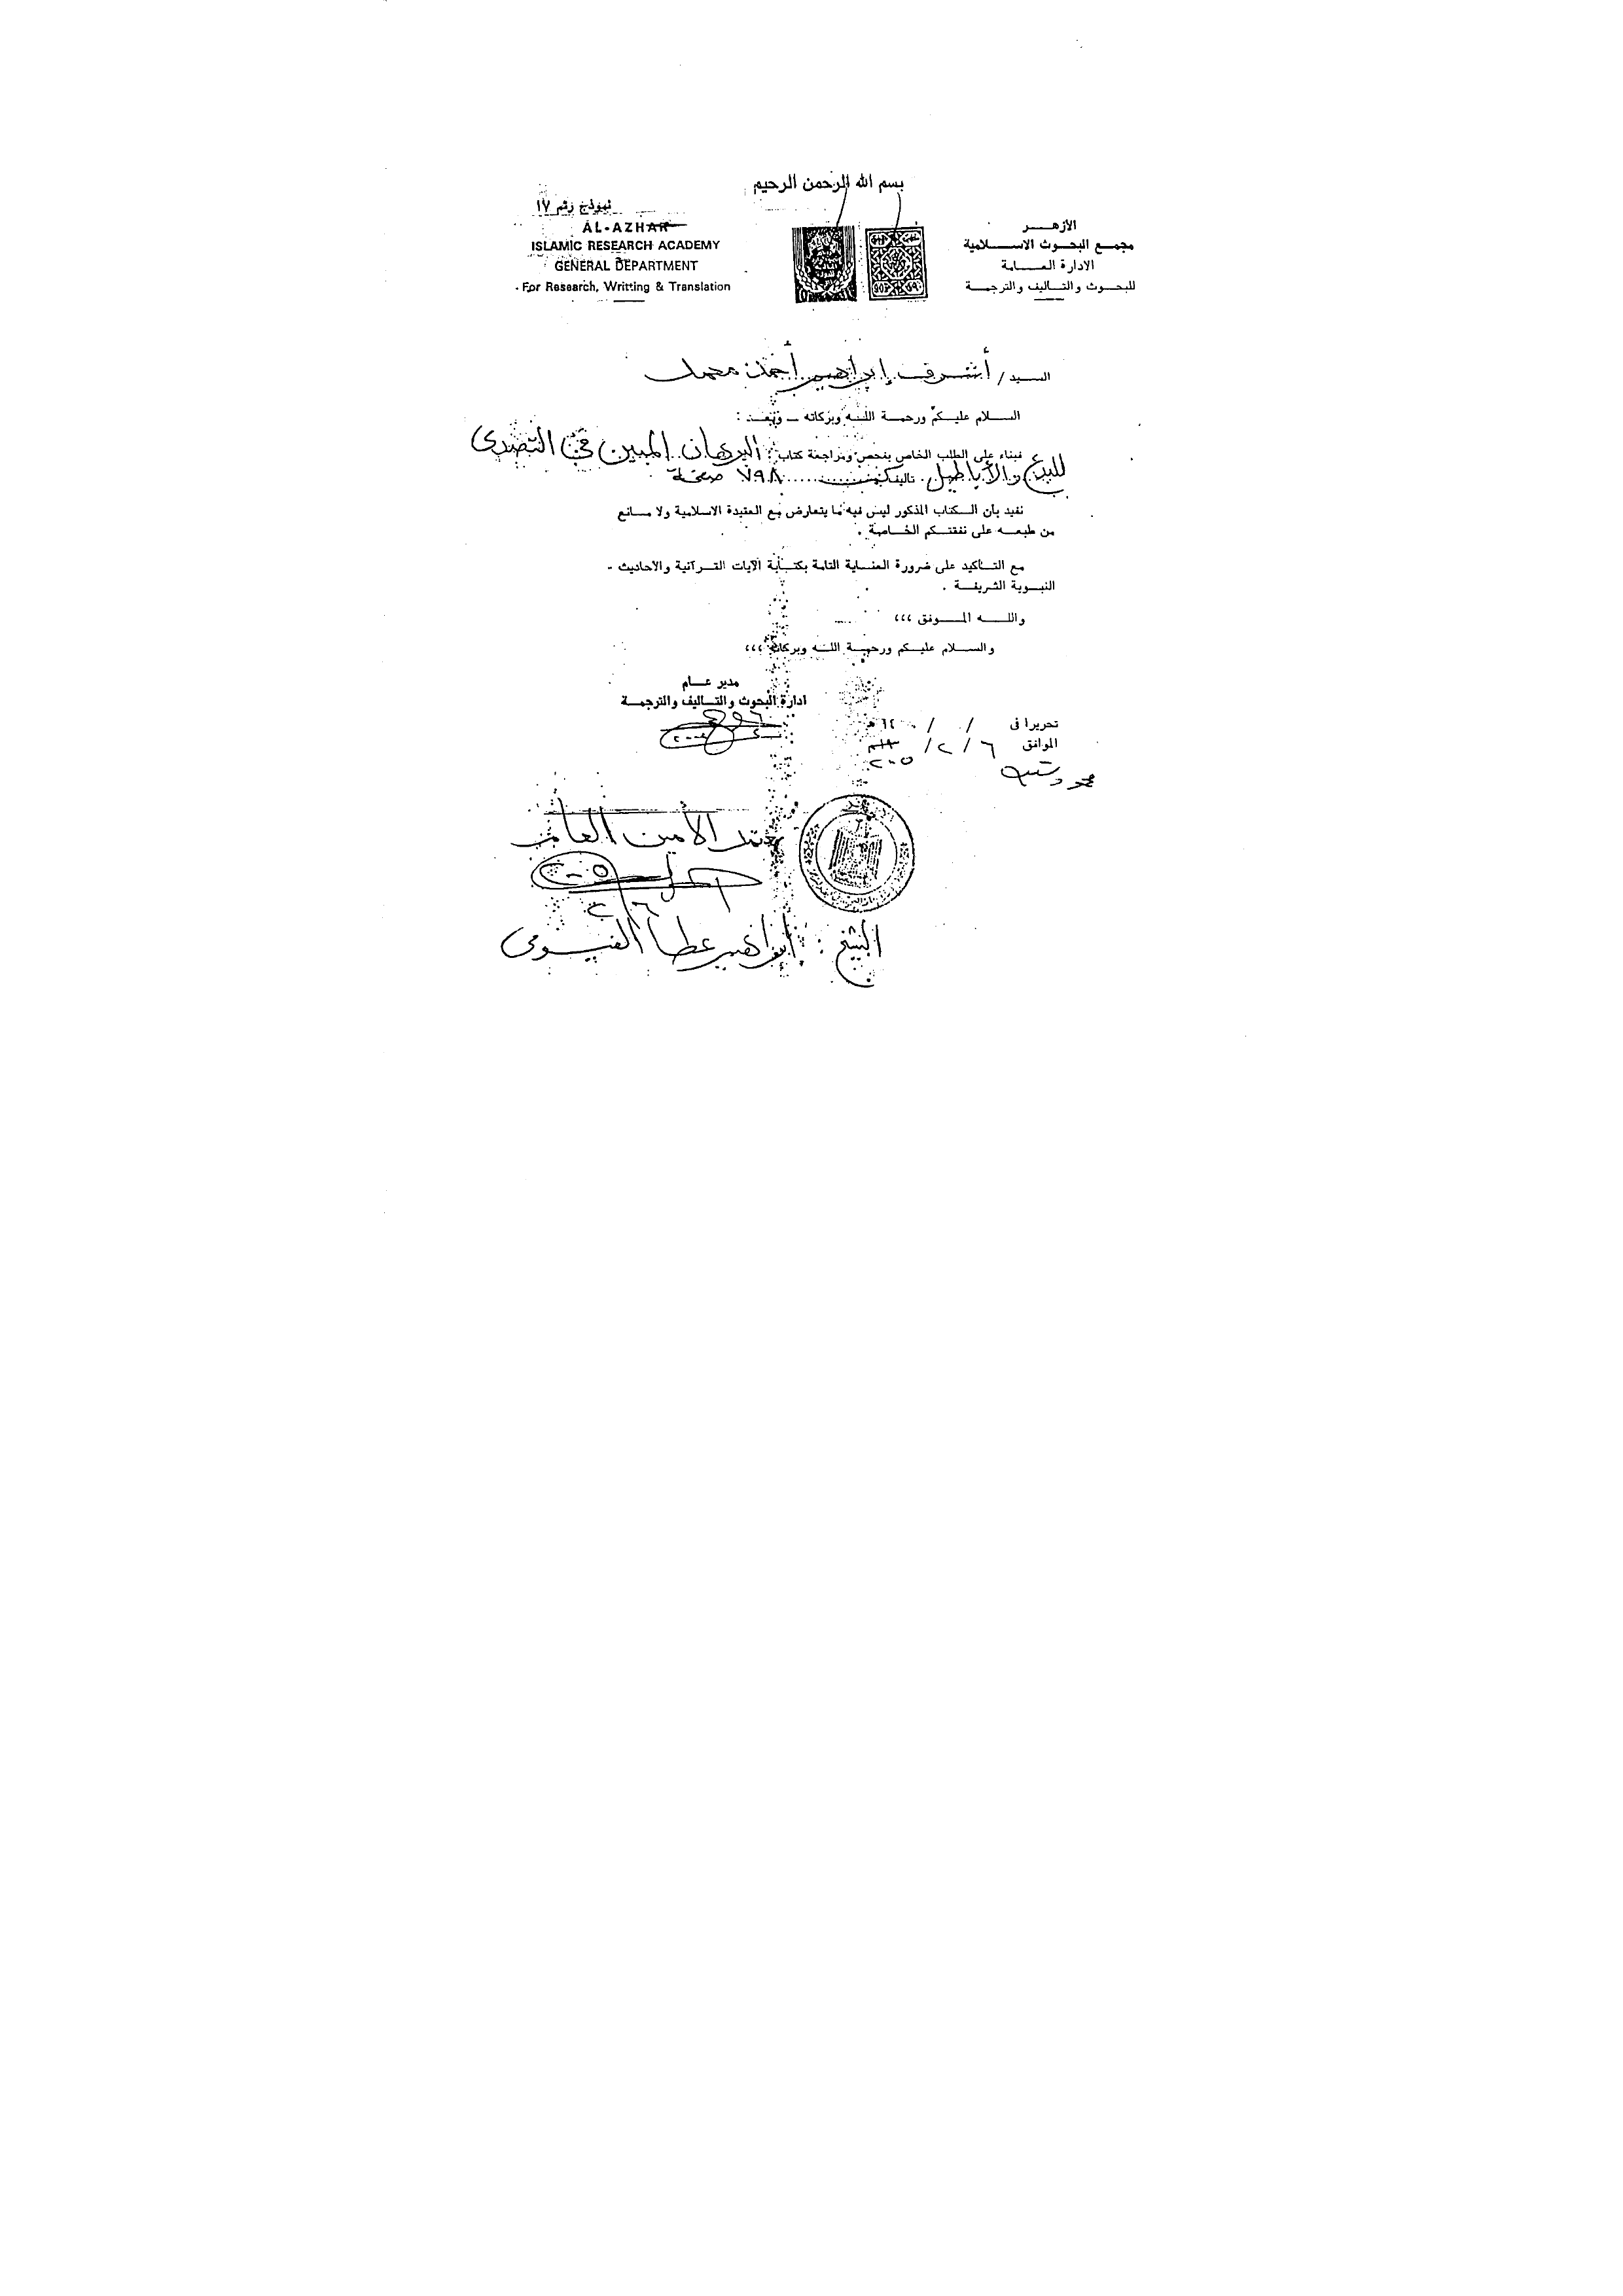 بسم الله الرحمن الرحيم
نموذج رقم ١٧
الأزهـــر
مجمـع البحـوث الاسـلامية
الادارة العـامة
للبحـوث والتـاليف والترجمـة
AL-AZHAR
ISLAMIC RESEARCH ACADEMY
GENERAL DEPARTMENT
For Research, Writting & Translation
السـيد / أشرف إبراهيم أحمد محمد
السـلام عليـكم ورحمـة اللـه وبركاته ــ وبعـد :
فبناء على الطلب الخاص بفحص ومراجعة كتاب : البرهان المبين في التصدى
للبدع والأباطيل . تاليف ٧٩٨ صفحة
نفيد بأن الـكتاب المذكور ليس فيه ما يتعارض مع العقيدة الاسلامية ولا مـانع
من طبعـه على نفقتـكم الخـاصة .
مع التـأكيد على ضرورة العنـاية التامة بكتـابة الآيات القـرآنية والأحاديث -
النبـوية الشريفـة .
واللـه المـوفق ،،،
والسـلام عليـكم ورحمـة اللـه وبركاته ،،،
مدير عـام
ادارة البحوث والتـاليف والترجمـة
تحريرا فى / /
الموافق ٦ / ٢ / ٢٠٠٥
يعتمد الأمين العام
٢٠٠٥
٦/٢
الشيخ : إبراهيم عطا الفيومى